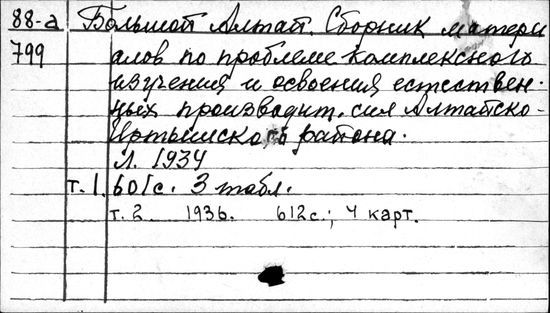 88-а Большой Алтай. Сборник матери
799 алов по проблеме комплексного
изучения и освоения естествен-
ных производит. сил Алтайско-
Иртышского района.
Л. 1934
т. 1. 601с. 3 табл.
т. 2 1936. 612с.; 4 карт.